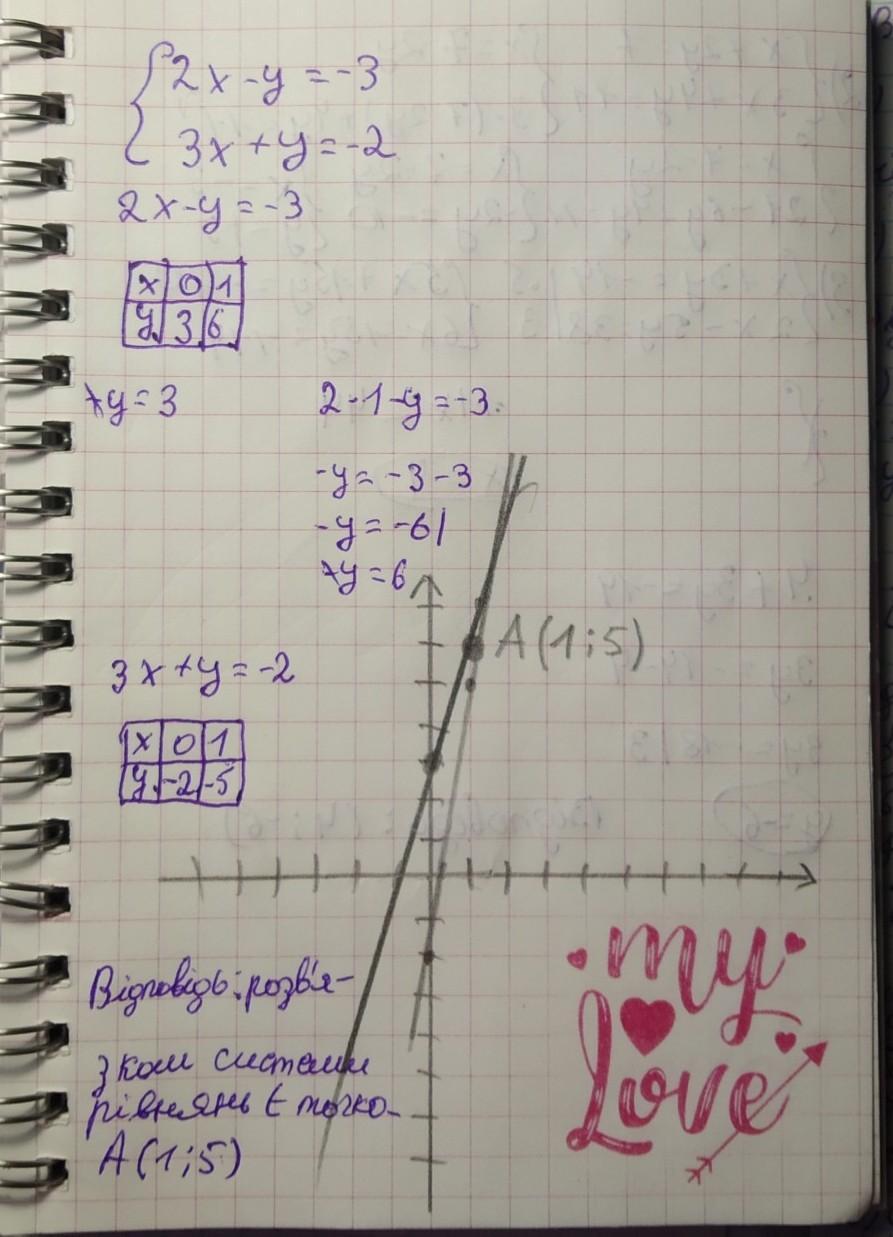 2x-y=-3
3x+y=-2
2x-y=-3
x 0 1
y 3 6
y=3
2·1-y=-3
-y=-3-3
-y=-6|
y=6
A(1;5)
3x+y=-2
x 0 1
y -2 -5
Відповідь: розв'я-
зком системи
рівнянь є точка
A(1;5)
my
Love